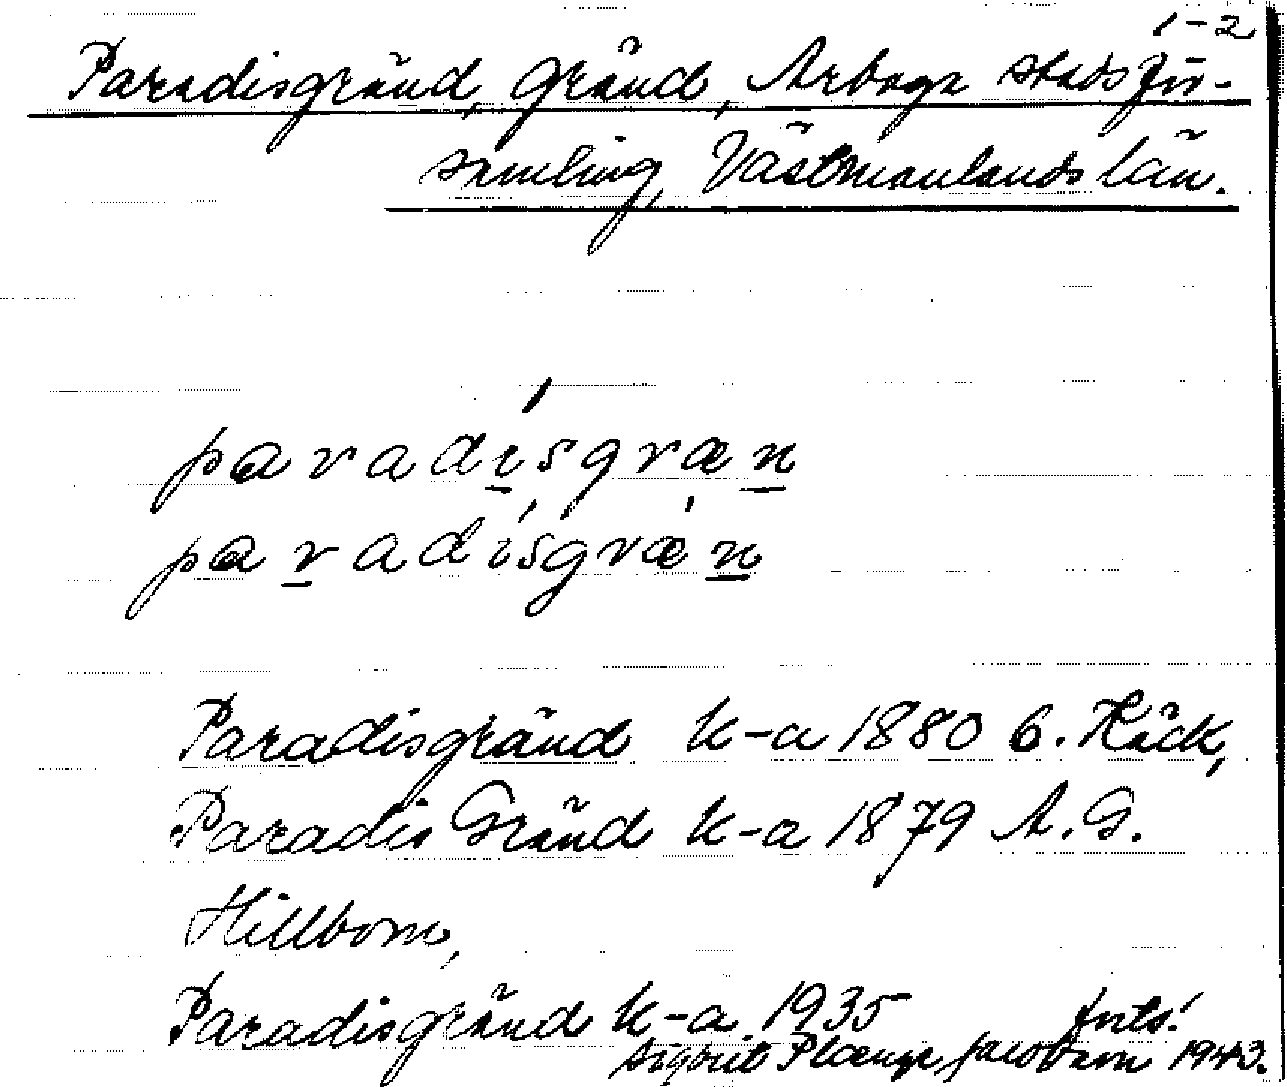 1-2
Paradisgränd, Gränd, Arboga stadsför-
samling, Västmanlands län.
paradí̲sgræn̲
par̲adísgræ̀n̲
Paradisgränd k-a 1880 G. Käck,
Paradis Gränd k-a 1879 A. G.
Hillbom,
Paradisgränd k-a 1935 fnts!
Sigbrit Plænge Jacobson 1943.